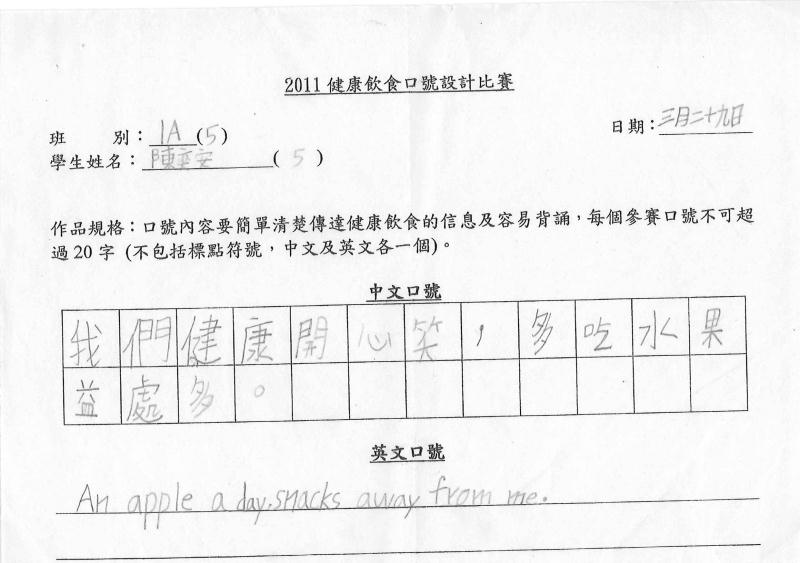 2011 健康飲食口號設計比賽
班 別：1A (5) 日期：三月二十九日
學生姓名：陳奕安 ( 5 )
作品規格：口號內容要簡單清楚傳達健康飲食的信息及容易背誦，每個參賽口號不可超
過 20 字 (不包括標點符號，中文及英文各一個)。
中文口號
我們健康開心笑，多吃水果
益處多。
英文口號
An apple a day. snacks away from me.